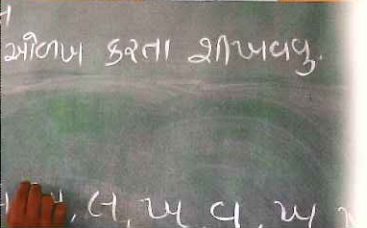 ઓળખ કરતા શીખવવુ.
લ, ખ, વ, અ